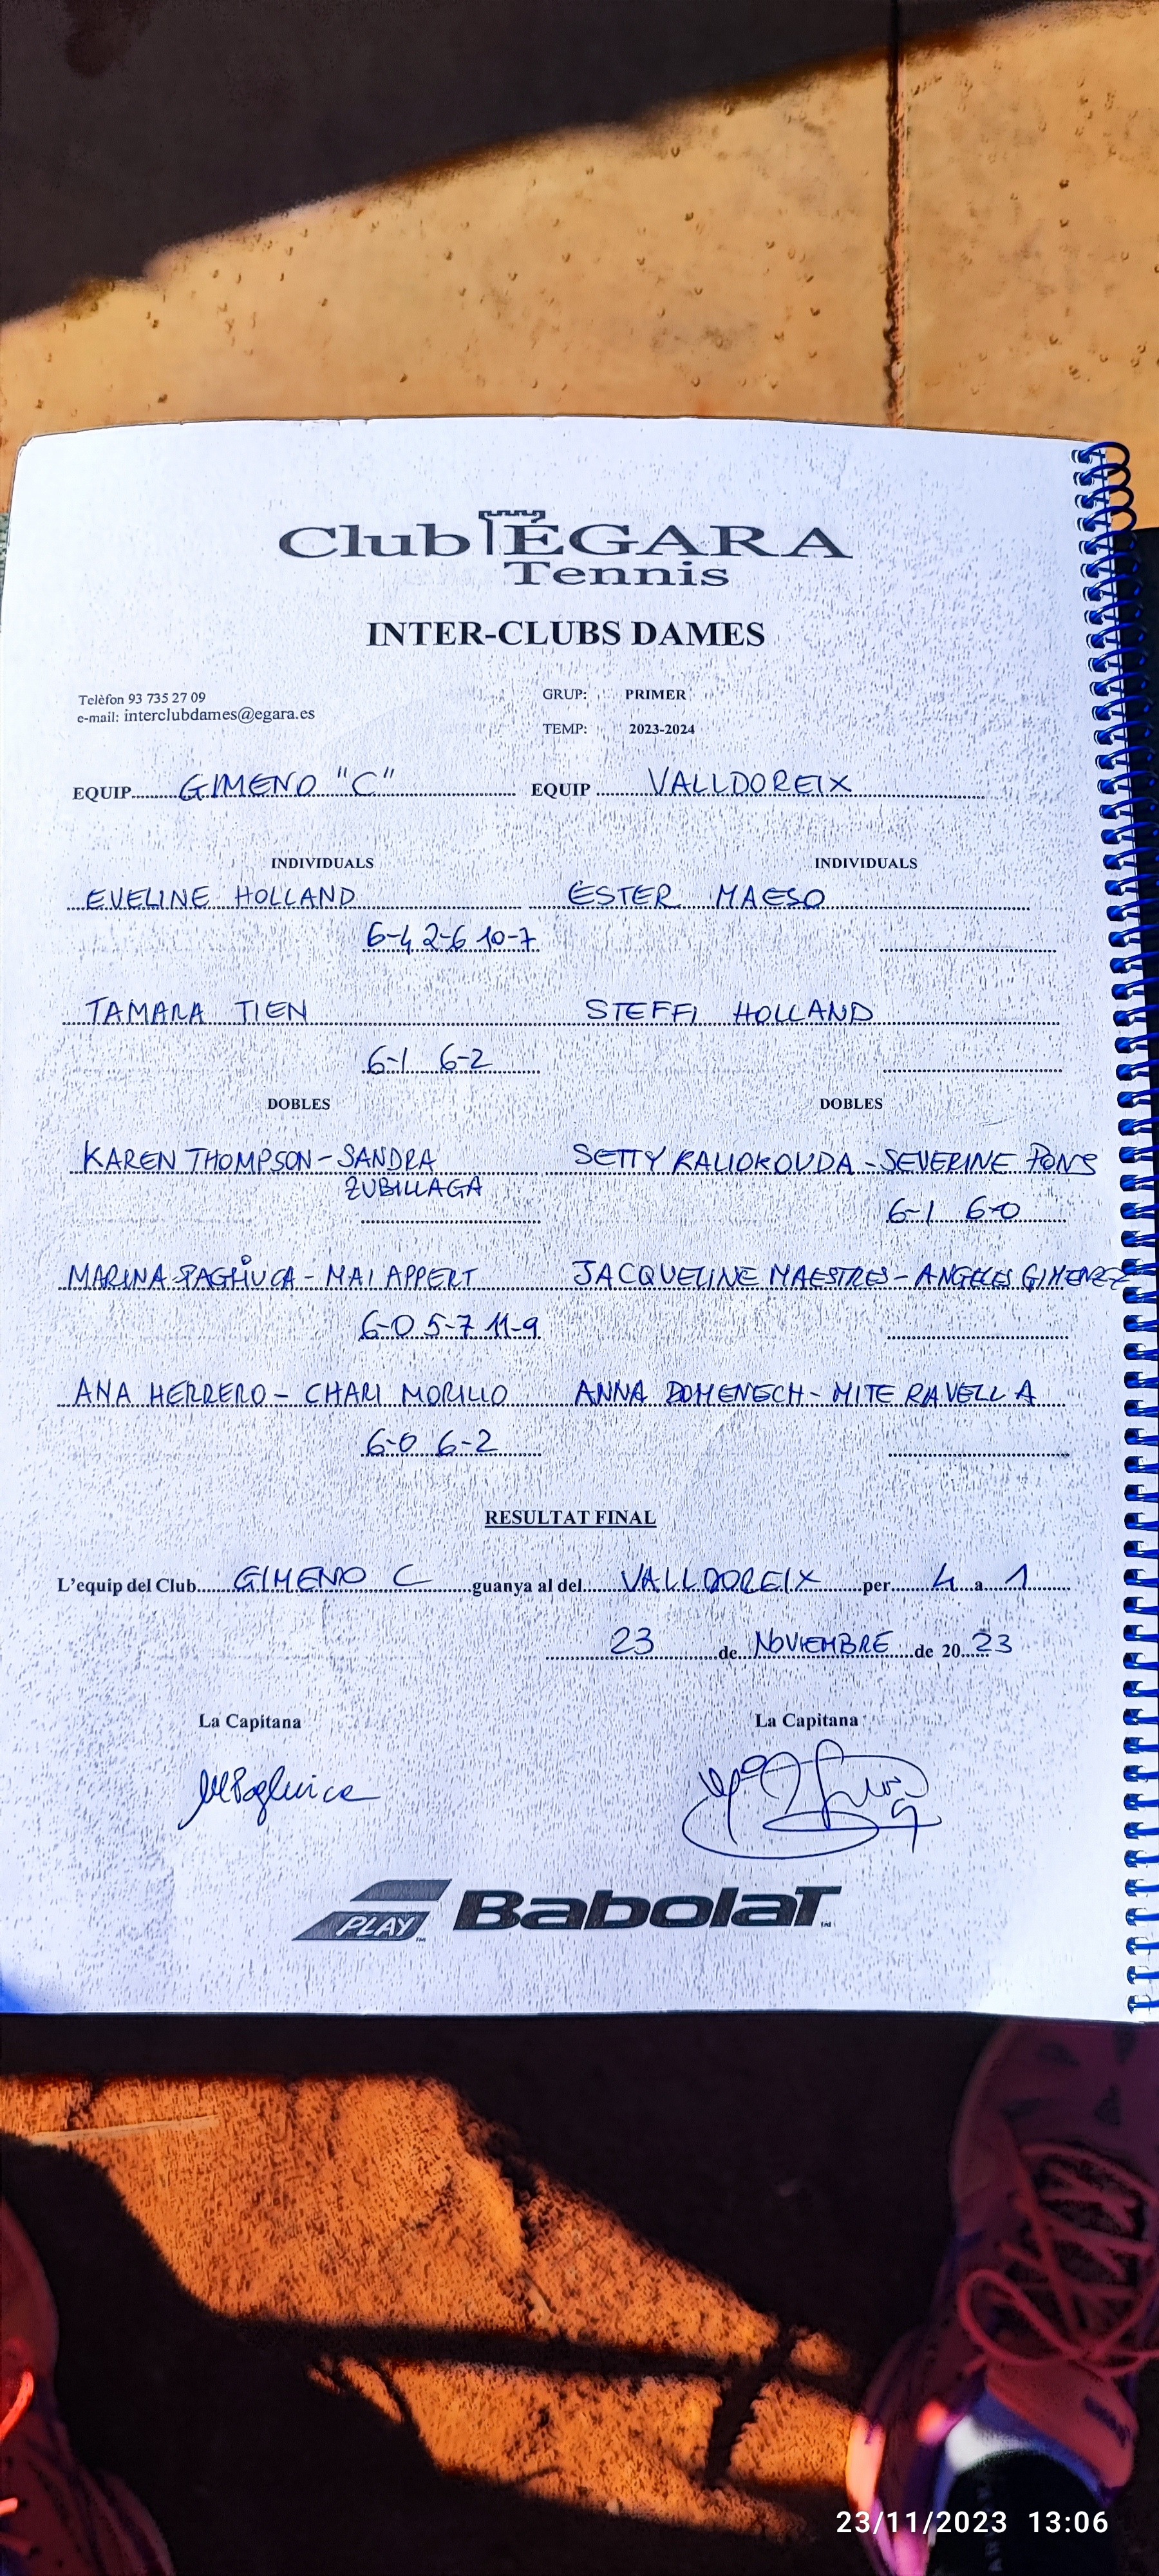 Club ÈGARA
Tennis
INTER-CLUBS DAMES
Telèfon 93 735 27 09
e-mail: interclubdames@egara.es
GRUP: PRIMER
TEMP: 2023-2024
EQUIP GIMENO "C" EQUIP VALLDOREIX
INDIVIDUALS INDIVIDUALS
EVELINE HOLLAND ESTER MAESO
6-4 2-6 10-7
TAMARA TIEN STEFFI HOLLAND
6-1 6-2
DOBLES DOBLES
KAREN THOMPSON - SANDRA SETTY KALIOKOUDA - SEVERINE PONS
ZUBILLAGA
6-1 6-0
MARINA PAGLIUCA - MAI APPERT JACQUELINE MAESTRES - ANGELES GIMENEZ
6-0 5-7 11-9
ANA HERRERO - CHARI MORILLO ANNA DOMENECH - MITE RAVELLA
6-0 6-2
RESULTAT FINAL
L'equip del Club GIMENO C guanya al del VALLDOREIX per 4 a 1
23 de NOVIEMBRE de 2023
La Capitana La Capitana
PLAY BaboLaT
23/11/2023 13:06